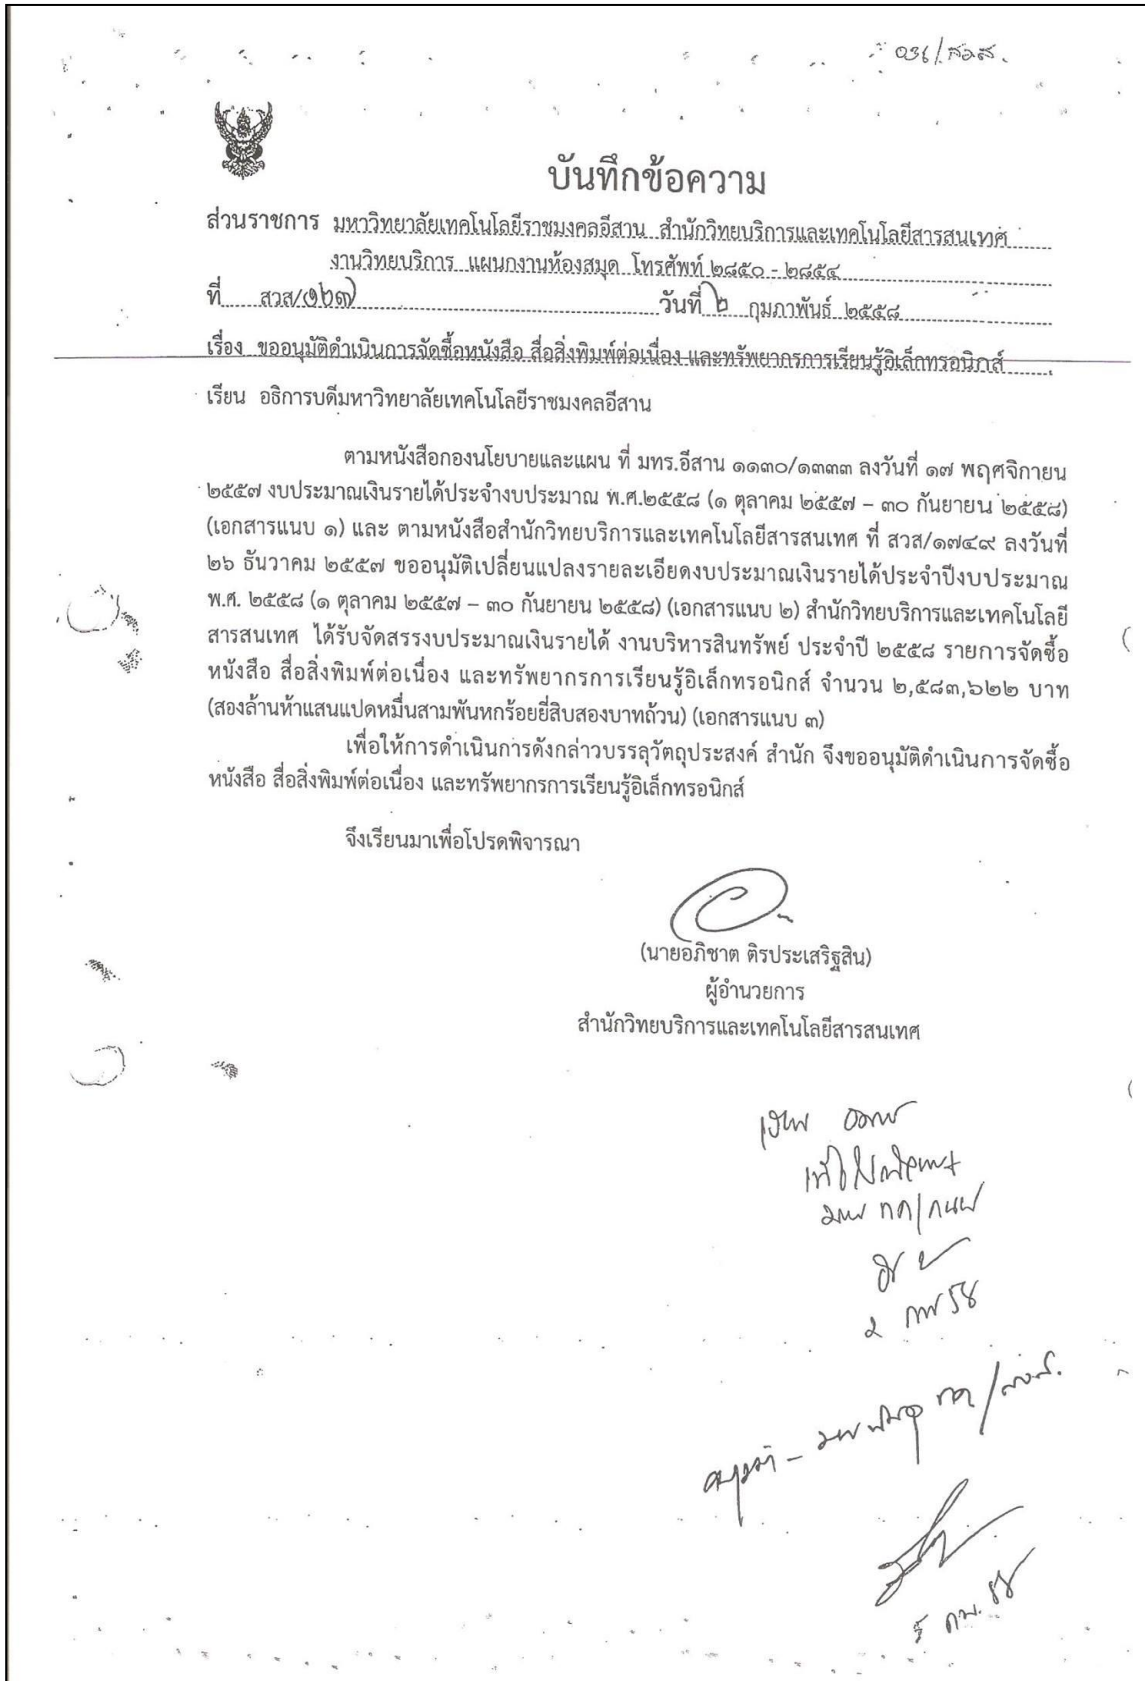 031/สวส.
บันทึกข้อความ
ส่วนราชการ มหาวิทยาลัยเทคโนโลยีราชมงคลอีสาน สำนักวิทยบริการและเทคโนโลยีสารสนเทศ
งานวิทยบริการ แผนกงานห้องสมุด โทรศัพท์ ๒๘๕๐ - ๒๘๕๔
ที่ สวส/๑๒๗ วันที่ ๒ กุมภาพันธ์ ๒๕๕๘
เรื่อง ขออนุมัติดำเนินการจัดซื้อหนังสือ สื่อสิ่งพิมพ์ต่อเนื่อง และทรัพยากรการเรียนรู้อิเล็กทรอนิกส์
เรียน อธิการบดีมหาวิทยาลัยเทคโนโลยีราชมงคลอีสาน
ตามหนังสือกองนโยบายและแผน ที่ มทร.อีสาน ๑๑๓๐/๑๓๓๓ ลงวันที่ ๑๗ พฤศจิกายน
๒๕๕๗ งบประมาณเงินรายได้ประจำงบประมาณ พ.ศ.๒๕๕๘ (๑ ตุลาคม ๒๕๕๗ – ๓๐ กันยายน ๒๕๕๘)
(เอกสารแนบ ๑) และ ตามหนังสือสำนักวิทยบริการและเทคโนโลยีสารสนเทศ ที่ สวส/๑๗๔๙ ลงวันที่
๒๖ ธันวาคม ๒๕๕๗ ขออนุมัติเปลี่ยนแปลงรายละเอียดงบประมาณเงินรายได้ประจำปีงบประมาณ
พ.ศ. ๒๕๕๘ (๑ ตุลาคม ๒๕๕๗ – ๓๐ กันยายน ๒๕๕๘) (เอกสารแนบ ๒) สำนักวิทยบริการและเทคโนโลยี
สารสนเทศ ได้รับจัดสรรงบประมาณเงินรายได้ งานบริหารสินทรัพย์ ประจำปี ๒๕๕๘ รายการจัดซื้อ
หนังสือ สื่อสิ่งพิมพ์ต่อเนื่อง และทรัพยากรการเรียนรู้อิเล็กทรอนิกส์ จำนวน ๒,๕๘๓,๖๒๒ บาท
(สองล้านห้าแสนแปดหมื่นสามพันหกร้อยยี่สิบสองบาทถ้วน) (เอกสารแนบ ๓)
เพื่อให้การดำเนินการดังกล่าวบรรลุวัตถุประสงค์ สำนัก จึงขออนุมัติดำเนินการจัดซื้อ
หนังสือ สื่อสิ่งพิมพ์ต่อเนื่อง และทรัพยากรการเรียนรู้อิเล็กทรอนิกส์
จึงเรียนมาเพื่อโปรดพิจารณา
(นายอภิชาต ติรประเสริฐสิน)
ผู้อำนวยการ
สำนักวิทยบริการและเทคโนโลยีสารสนเทศ
2 กพ 58
5 กพ. 58